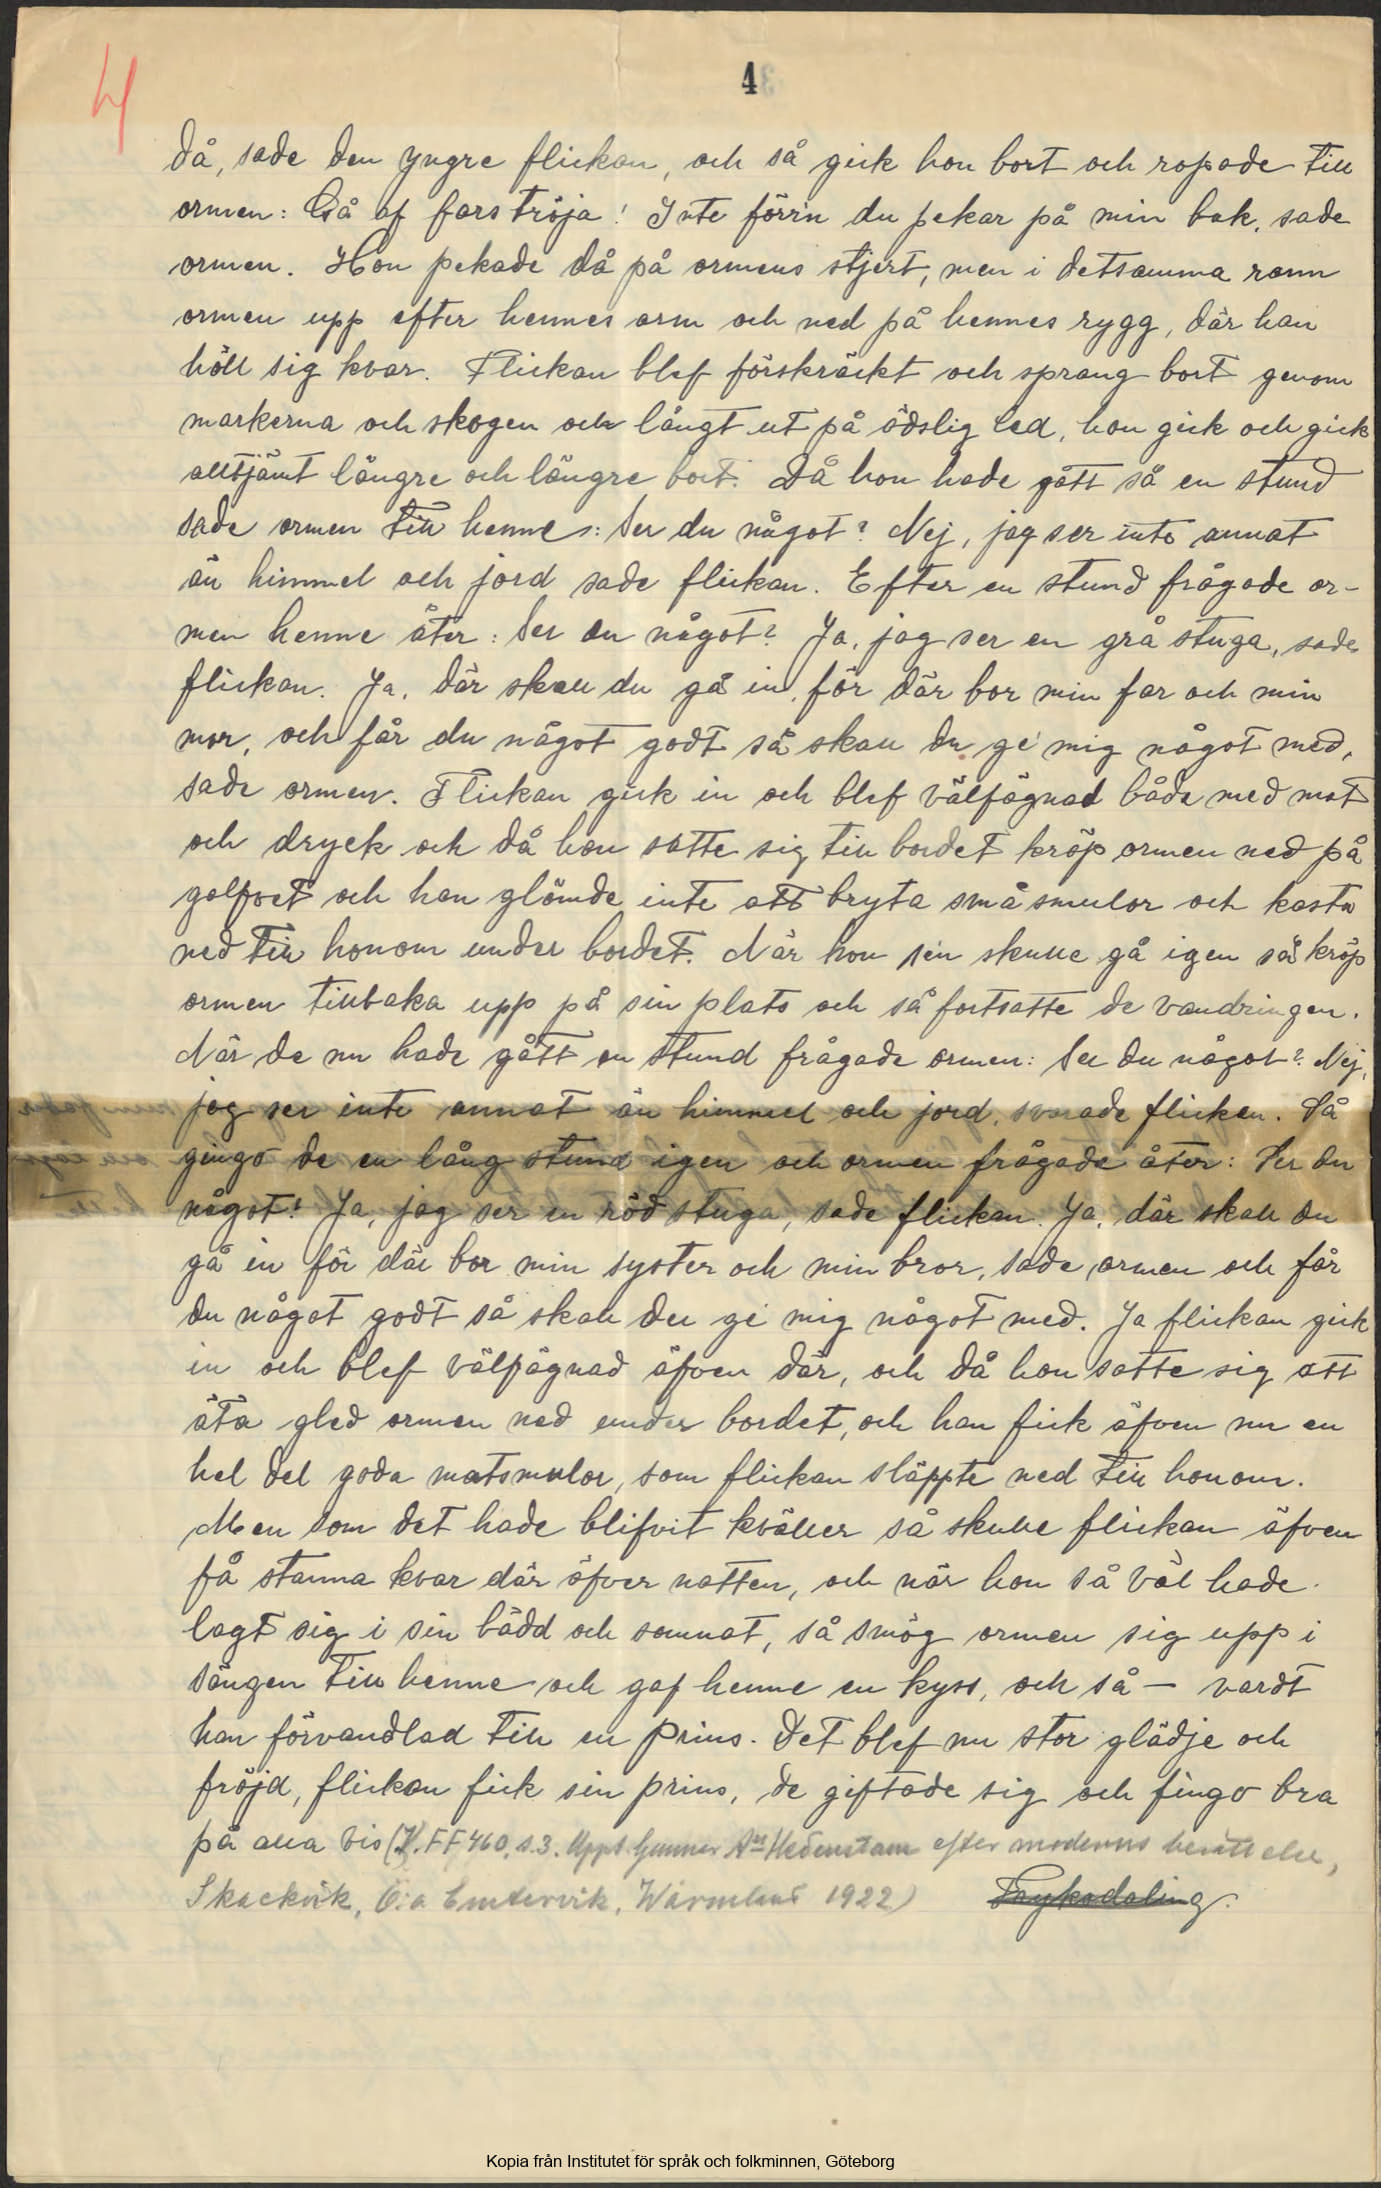 4
4
då, sade den yngre flickan, och så gick hon bort och ropade till
ormen: Gå af fars tröja! Inte förr'n du pekar på min bak, sade
ormen. Hon pekade då på ormens stjert, men i detsamma rann
ormen upp efter hennes arm och ned på hennes rygg, där han
höll sig kvar. Flickan blef förskräckt och sprang bort genom
markerna och skogen och långt ut på ödslig led, hon gick och gick
alltjämt längre och längre bort. Då hon hade gått så en stund
sade ormen till henne: Ser du något? Nej, jag ser inte annat
än himmel och jord sade flickan. Efter en stund frågade or-
men henne åter: Ser du något? Ja, jag ser en grå stuga, sade
flickan. Ja, där skall du gå in, för där bor min far och min
mor, och får du något godt så skall du ge mig något med,
sade ormen. Flickan gick in och blef välfägnad både med mat
och dryck och då hon satte sig till bordet kröp ormen ned på
golfvet och hon glömde inte att bryta små smulor och kasta
ned till honom under bordet. När hon se'n skulle gå igen så kröp
ormen tillbaka upp på sin plats och så fortsatte de vandringen.
När de nu hade gått en stund frågade ormen: Ser du något? Nej,
jag ser inte annat än himmel och jord, svarade flickan. Så
gingo de en lång stund igen och ormen frågade åter: Ser du
något? Ja, jag ser en röd stuga, sade flickan. Ja, där skall du
gå in för där bor min syster och min bror, sade ormen och får
du något godt så skall du ge mig något med. Ja flickan gick
in och blef välfägnad äfven där, och då hon satte sig att
äta gled ormen ned under bordet, och han fick äfven nu en
hel del goda matsmulor, som flickan släppte ned till honom.
Men som det hade blifvit kväller så skulle flickan äfven
få stanna kvar där öfver natten, och när hon så väl hade
lagt sig i sin bädd och somnat, så smög ormen sig upp i
sängen till henne och gaf henne en kyss, och så — vardt
han förvandlad till en prins. Det blef nu stor glädje och
fröjd, flickan fick sin prins, de giftade sig och fingo bra
på alla vis (V.F.F 460, s.3. Uppt. Gunnar A:n Hedenstam efter moderns berättelse,
Skackvik, Ö:a Emtervik, Wärmland 1922) Fryksdaling.
Kopia från Institutet för språk och folkminnen, Göteborg